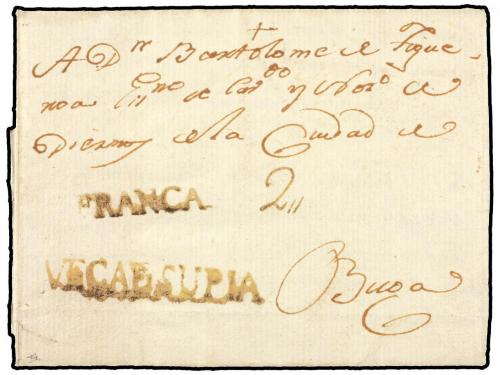 A Dn Bartolome de Figue
roa Ssno de Cavdo y de
Diezmos de la Ciudad de
FRANCA 2
VEGADSUPIA Buga